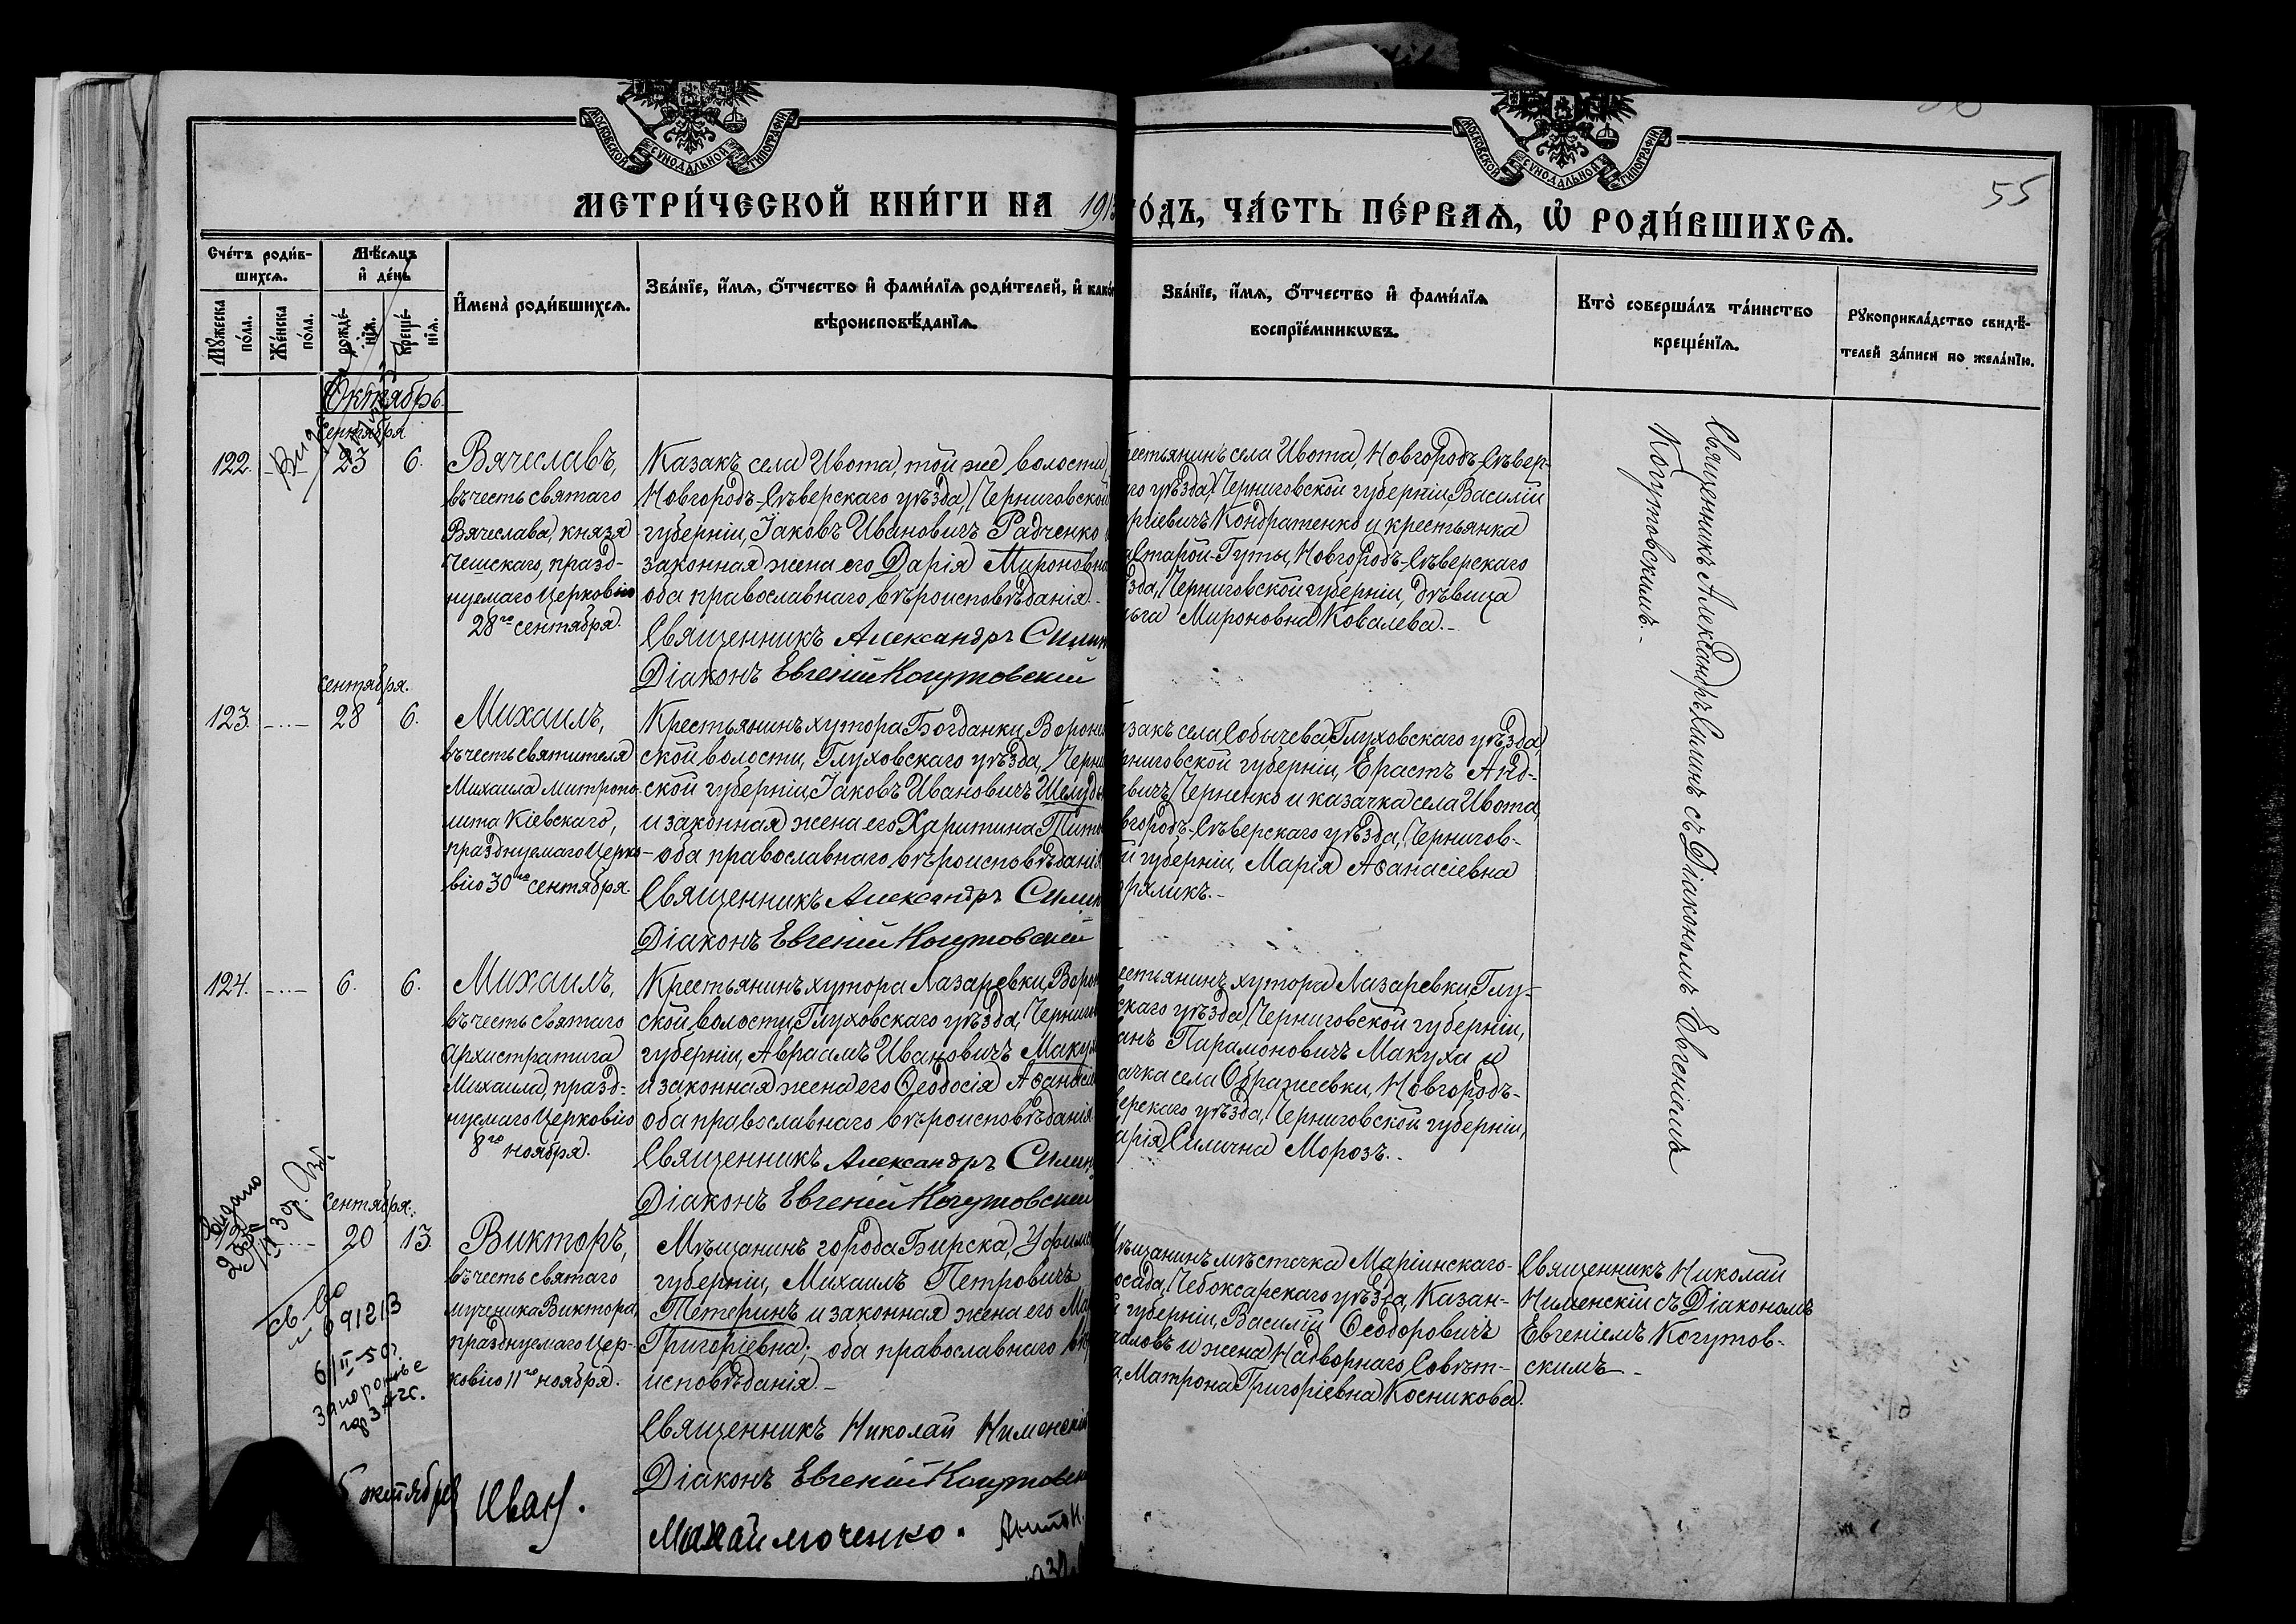 МОСКОВСКОЙ СѴНОДАЛЬНОЙ ТИПОГРАФІИ
МОСКОВСКОЙ СѴНОДАЛЬНОЙ ТИПОГРАФІИ
55
МЕТРИ́ЧЕСКОЙ КНИ́ГИ НА 191
ОДЪ, ЧА́СТЬ ПЕ́РВАѦ, Ѡ҆ РОДИ́ВШИХСѦ.
Сче́тъ роди́в-
шихсѧ.
Мѣ́сѧцъ
и҆ де́нь
Мꙋ́жеска
по́ла.
Же́нска
по́ла.
рожде́-
нїѧ.
креще́-
нїѧ.
И҆мена̀ роди́вшихсѧ.
Зва́нїе, и҆́мѧ, ѻ҆́тчество и҆ фами́лїѧ роди́телей, и҆ како́
вѣроисповѣ́данїѧ.
Зва́нїе, и҆́мѧ, ѻ҆́тчество и҆ фами́лїѧ
воспрїе́мникѡвъ.
Кто̀ соверша́лъ та́инство
креще́нїѧ.
Рꙋкоприкла́дство свидѣ́-
телей за́писи по жела́нїю.
Октябрь.
сентября
122.
23
6.
Вячеславъ,
въ честь святаго
Вячеслава, князя
Чешскаго, празд-
нуемаго Церковію
28го сентября.
Казакъ села Ивота, той же волости,
Новгородъ-Сѣверскаго уѣзда, Черниговской
губерніи, Іаковъ Ивановичъ Радченко
законная жена его Дарія Мироновна
оба православнаго вѣроисповѣданія.-
Священникъ Александръ Силин
Діаконъ Евгеній Когутовскій
естьянинъ села Ивота, Новгородъ-Сѣвер-
го уѣзда Черниговской губерніи, Василій
ргіевичъ Кондратенко и крестьянка
Старой-Гуты, Новгородъ-Сѣверскаго
зда, Черниговской губерніи, дѣвица
ьга Мироновна Ковалева.-
Священникъ Александръ Силинъ съ Діакономъ Евгеніемъ
Когутовскимъ.-
сентября.
123.
28
6.
Михаилъ,
въ честь святителя
Михаила Митропо-
лита Кіевскаго,
празднуемаго Церко-
вію 30го сентября.
Крестьянинъ хутора Богданки, Ворони
ской волости, Глуховскаго уѣзда, Черни
ской губерніи, Іаковъ Ивановичъ Шелуд
и законная жена его Харитина Тито
- оба православнаго вѣроисповѣданія
Священникъ Александръ Силин
Діаконъ Евгеній Когутовскій
закъ села Собычева, Глуховскаго уѣзда,
рниговской губерніи, Ерастъ Анд-
евичъ Черненко и казачка села Ивота,
вгородъ-Сѣверскаго уѣзда, Чернигов-
й губерніи, Марія Аѳанасіевна
рхликъ.-
124.
6.
6.
Михаилъ,
въ честь святаго
Архистратига
Михаила, празд-
нуемаго Церковію
8го ноября.
Крестьянинъ хутора Лазаревки, Ворон
ской волости, Глуховскаго уѣзда, Черниг
губерніи, Авраамъ Ивановичъ Макух
и законная жена его Ѳеодосія Аѳанасіе
оба православнаго вѣроисповѣданія.
Священникъ Александръ Силин
Діаконъ Евгеній Когутовскій
естьянинъ хутора Лазаревки, Глу-
скаго уѣзда, Черниговской губерніи,
анъ Парамоновичъ Макуха и
ачка села Ображеевки, Новгородъ-
верскаго уѣзда, Черниговской губерніи,
арія Силична Морозъ.-
Выдано
сентября.
20
13.
Викторъ,
въ честь святаго
мученика Виктора,
празднуемаго Цер-
ковію 11го ноября.
Мѣщанинъ города Бирска, Уфимс
губерніи, Михаилъ Петровичъ
Тетеринъ и законная жена его Ма
Григоріевна; оба православнаго вѣ
исповѣданія.-
Священникъ Николай Нименскій
Діаконъ Евгеній Когутовск
ѣщанинъ мѣстечка Маріинскаго-
осада, Чебоксарскаго уѣзда, Казан-
й губерніи, Василій Ѳеодоровичъ
аловъ и жена Надворнаго Совѣт-
а, Матрона Григоріевна Косникова.
Священникъ Николай
Нименскій съ Діакономъ
Евгеніемъ Когутов-
скимъ-
св во
691213
6/II-50г.
Запорожье
гор ЗАГС.
Иван.